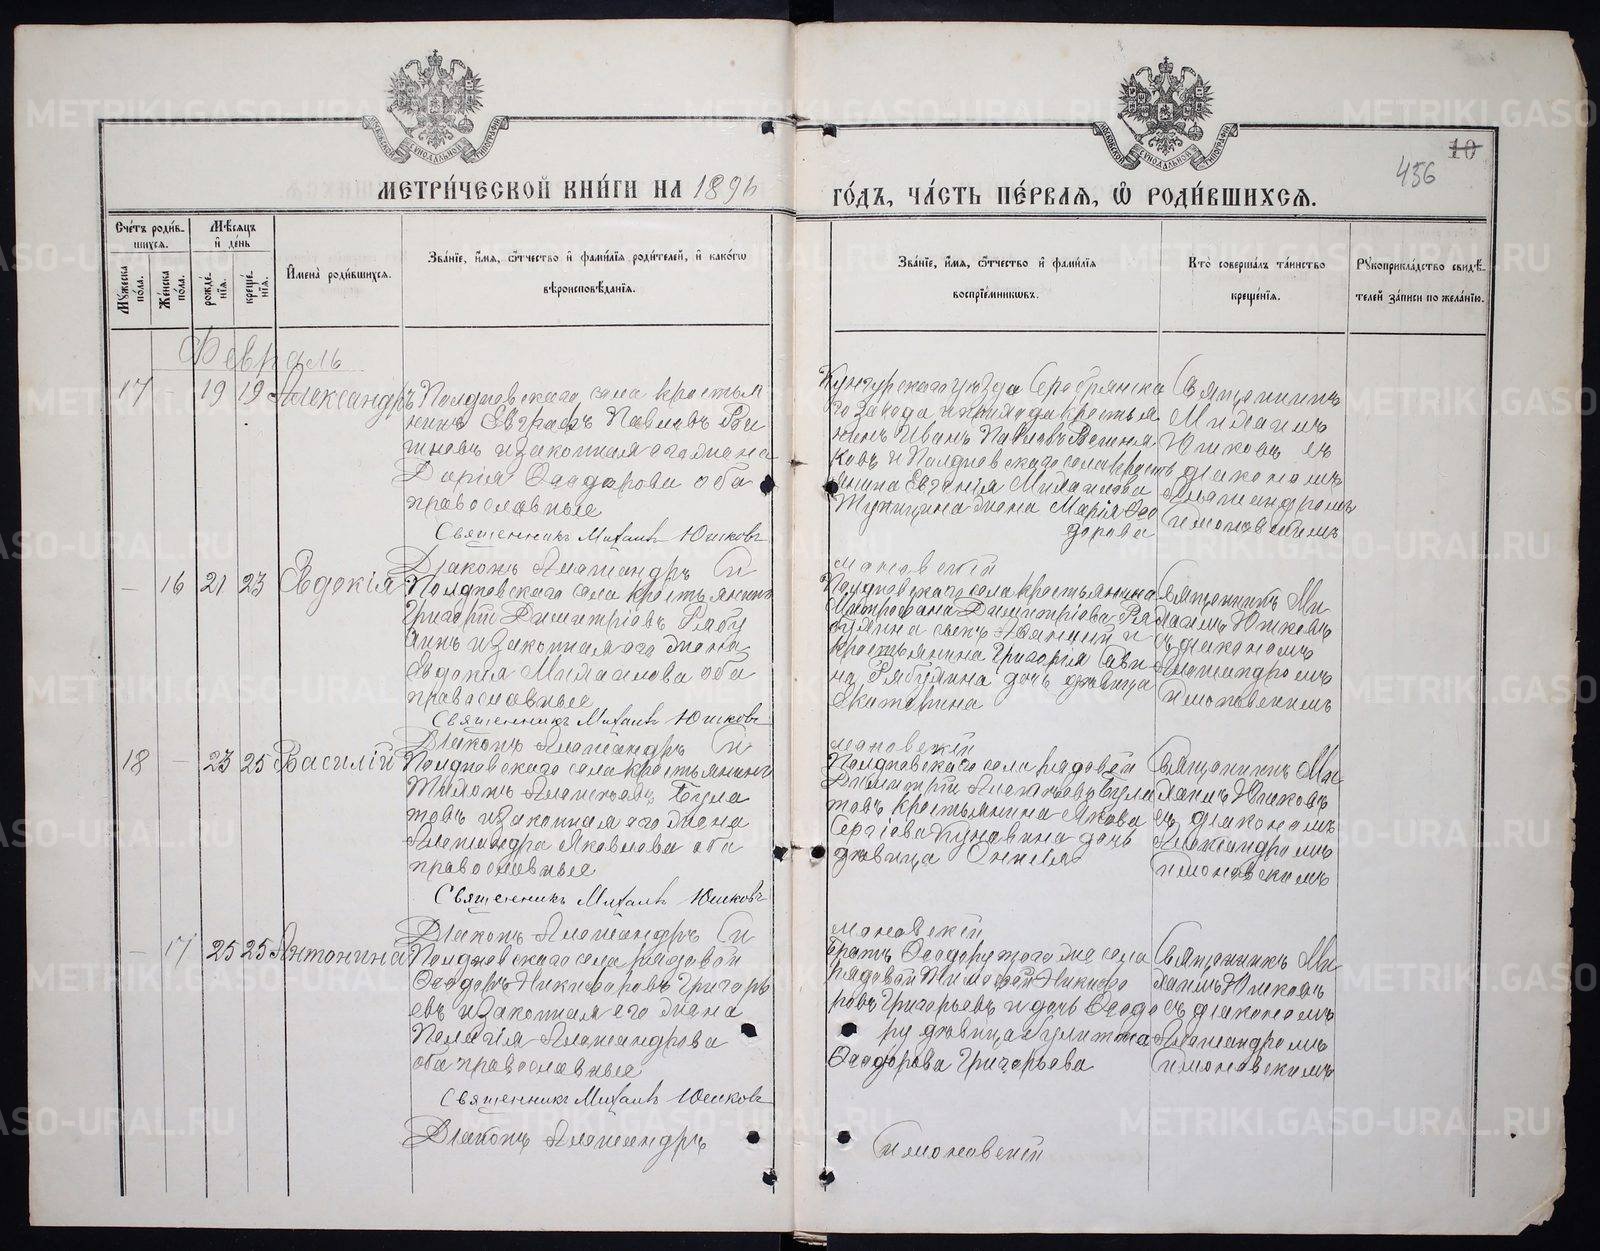 МЕТРИ́ЧЕСКОЙ КНИ́ГИ НА 1896
ГО́ДЪ, ЧА́СТЬ ПЕ́РВАЯ, Ѡ҆ РОДИ́ВШИХСЯ.
436
10
Сче́тъ роди́в-
шихся.
Мѣ́сяцъ
и҆ де́нь
Му́жеска по́ла.
Же́нска по́ла.
рожде́нїя.
креще́нїя.
И҆мена̀ роди́вшихся.
Зва́нїе, и҆́мя, ѻ҆́тчество и҆ фами́лїя роди́телей, и҆ како́гѡ
вѣроисповѣ́данїя.
Зва́нїе, и҆́мя, ѻ҆́тчество и҆ фами́лїя
воспрїе́мниковъ.
Кто̀ соверша́лъ та́инство
креще́нїя.
Рукоприкла́дство свидѣ́-
телей за́писи по жела́нїю.
Февраль
17 19 19 Александръ
Полдневскаго села крестья
нинъ Евграфъ Павловъ
и законная его жена
Дарія Ѳеодорова оба
православные
Священникъ Михаилъ Юшковъ
Діаконъ Александръ Си
Кунгурскаго уѣзда Серебрянска
го завода крестья
нинъ Иванъ Павловъ
ковъ и Полдневскаго села крест
янина Евгенія Михаилова
жена Марія Ѳео
дорова
мановскій
Священникъ
Михаилъ
Юшковъ съ
діакономъ
Александромъ
Симановскимъ
— 16 21 23 Евдокія
Полдневскаго села крестьянинъ
Григорій Димитріевъ Рябу
хинъ и законная его жена
Евдокія Михаилова оба
православные
Священникъ Михаилъ Юшковъ
Діаконъ Александръ Си
Полдневскаго села крестьянина
Митрофана Димитріева Ря
сынъ и
крестьянина Григорія Сави
на дочь дѣвица
Екатерина
мановскій
Священникъ Ми
хаилъ Юшковъ
съ діакономъ
Александромъ
Симановскимъ
18 — 23 25 Василій
Полдневскаго села крестьянинъ
Алексѣевъ Була
товъ и законная его жена
Александра Яковлева оба
православные
Священникъ Михаилъ Юшковъ
Діаконъ Александръ Си
Полдневскаго села рядовой
Димитрій Алексѣевъ Була
товъ крестьянина Якова
Сергіева дочь
дѣвица
мановскій
Священникъ Ми
хаилъ Юшковъ
съ діакономъ
Александромъ
Симановскимъ
— 17 25 25 Антонина
Полдневскаго села рядовой
Ѳеодоръ Никифоровъ Григорь
евъ и законная его жена
Пелагія Александрова
оба православные
Священникъ Михаилъ Юшковъ
Діаконъ Александръ
Братъ Ѳеодору того же села
рядовой Тимофей Никифо
ровъ Григорьевъ и дочь Ѳеодо
ру дѣвица Улитта
Ѳеодорова Григорьева
Симановскій
Священникъ Ми
хаилъ Юшковъ
съ діакономъ
Александромъ
Симановскимъ
METRIKI.GASO-URAL.RU